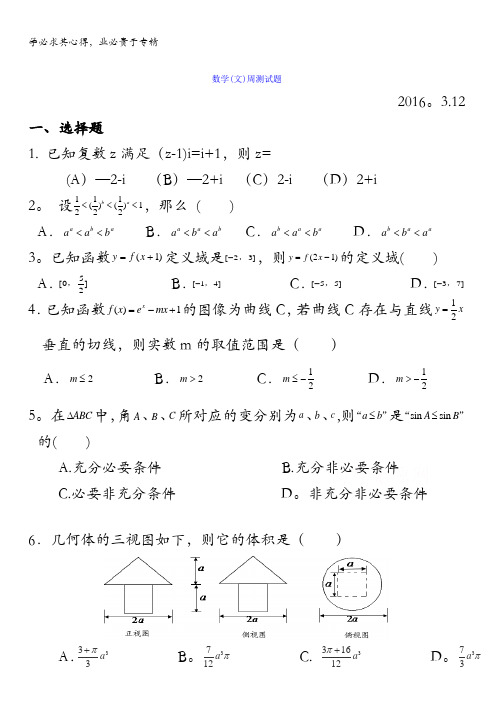 学必求其心得，业必贵于专精
数学(文)周测试题
2016。3.12
一、选择题
1. 已知复数 z 满足（z-1)i=i+1，则 z=
(A）—2-i （B）—2+i （C）2-i （D）2+i
2。 设 1/2<(1/2)^b<(1/2)^a<1，那么（ ）
A．a^a<a^b<b^a B．a^a<b^a<a^b C．a^b<a^a<b^a D．a^b<b^a<a^a
3。已知函数 y=f(x+1) 定义域是[-2，3]，则 y=f(2x-1) 的定义域( )
A．[0，5/2] B．[-1，4] C．[-5，5] D．[-3，7]
4．已知函数 f(x)=e^x-mx+1 的图像为曲线 C，若曲线 C 存在与直线 y=1/2 x
垂直的切线，则实数 m 的取值范围是（ ）
A．m≤2 B．m>2 C．m≤-1/2 D．m>-1/2
5。在ΔABC 中，角 A、B、C 所对应的变分别为 a、b、c ,则“a≤b”是“sin A≤sin B”
的( )
A.充分必要条件 B.充分非必要条件
C.必要非充分条件 D。非充分非必要条件
6．几何体的三视图如下，则它的体积是（ ）
a a a a
2a 2a 2a
正视图 侧视图 俯视图
A．(3+π)/3 a³ B。7/12 a³π C. (3π+16)/12 a³ D。7/3 a³π